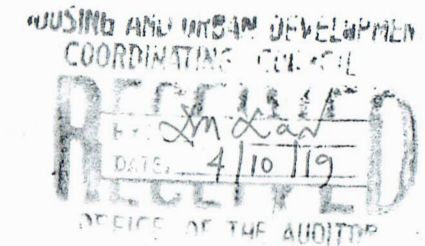 HOUSING AND URBAN DEVELOPMEN
COORDINATING COUNCIL
RECEIVED
BY:
DATE: 4/10/19
OFFICE OF THE AUDITOR